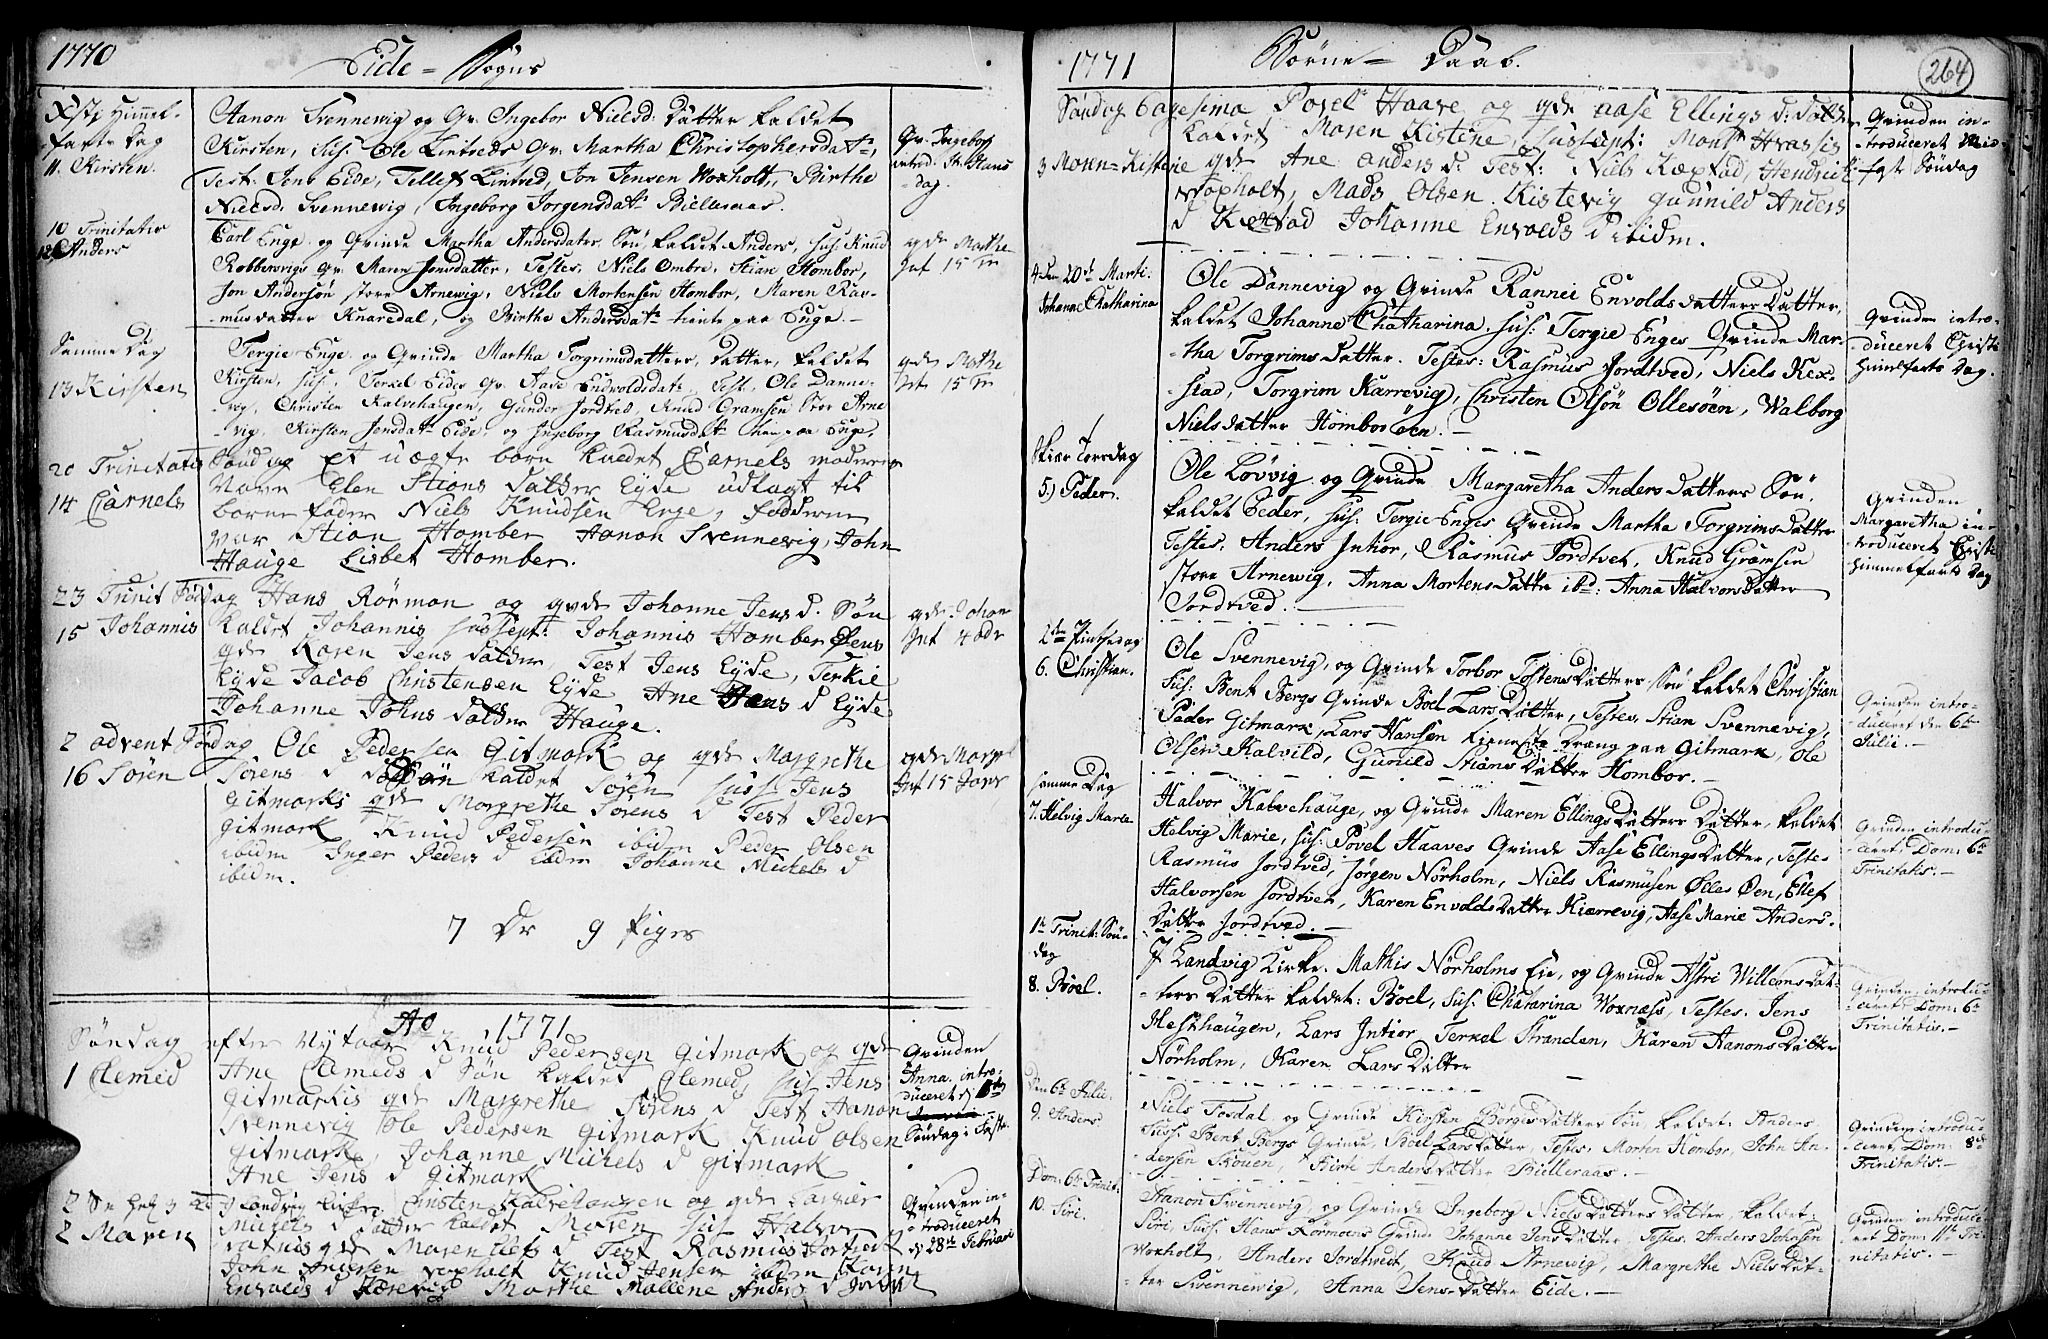 1770
Eide = Sogns
Xsti Himmel-
farts Dag
11. Kirsten.
Aanon Svennevig og Qv. Ingebor Nielsd: Datter kaldet
Kirsten, sus. Ole Lintveds Qv. Martha Christophersdatr,
Test. Jens Eide, Tellef Lintved, Jon Jensen Voxholt, Birthe
Nielsd. Svennewig, Ingeborg Jorgensdatr Bielleraas.
Qv. Ingebor
introd: St. Hans
dag.
10 Trinitatis
12. Anders
Carl Enge og Qvinde Martha Andersdatter, Søn, kaldet Anders, sus. Knud
Robbersvigs Qv. Maren Jensdatter, Testes, Niels Ombre, Stian Hombor,
Jon Andersøn store Arnewig, Niels Mortensen Hombor, Maren Ras-
musdatter Knaredal, og Birthe Andersdatr tiente paa Enge.
qde Marthe
Int 15 Tr
Samme Dag
13 Kirsten
Tergie Enge og Qvinde Martha Torgrimsdatters, Datter, kaldet
Kirsten, sus. Terkel Eides Qv. Aase Endvoldsdatr, Test. Ole Danne-
vig, Christen Kalvehaugen, Gunder Jordtved, Knud Gramsen Stor Arne
vig, Kirsten Jonsdatr Eide, og Ingeborg Rasmusdatr paa Enge.
qde Marthe
Int 15 Tr
20 Trinitatis
14 Carnels
Søndag et uægte barn kaldet Carnels moderens
Navn Elen Stians datter Eyde udlagt til
barne fader Niels Knudsen Enge, fadderne
var Stian Homber Aanon Svennevig, John
Hauge Lisbet Homber.
23 Trinit Søndag
15 Johannis
Hans Rörmon og qvde Johanne Jens d. Søn
kaldet Johannis sussept: Johannis Homber Jens
qde Karen Jens datter, Test Jens Eyde, Terkil
Eyde Jacob Christensen Eyde Ane Jens d Eyde
Johanne Johns datter Hauge.
qde Johan
Int 4 adv
2 advent Søndag
16 Sören
Ole Pedersen Gitmark og qde Margrethe
Sörens d Søn kaldet Sören suss: Jens
Gitmarks qde Margrethe Sörens d Test Peder
Gitmark Knud Pedersen ibidem Peder Olsen
ibidm Inger Peders d ibidm Johanne Michels d
ibidm.
qde Margr
Int 15 Janv
7 Dr 9 Piger
Ao 1771
Søndag
1 Clemed
efter Nytaar Knud Pedersen Gitmark og qde
Ane Clemeds d Søn kaldet Clemed, sus Jens
Gitmarkis qde Margrethe Sörens d Test Aanon
Svennevig Ole Pedersen Gitmark Knud Olsen
Gitmark, Johanne Michels d Gitmark
Ane Jens d Gitmark
Qvinden
Anna. intro-
duceret
Søndag i Faste.
2
2 Maren
Landvig Kirke Cristen Kalvehaugen og qde
Michels d datter kaldet Maren sus Halvor
qde Maren d Test Rasmus Jortvedt
John Andersen voxholt Knud Jensen ibidm Karen
Envolds d Kærevig Marthe Mallene Anders d Jortvet
Qvinden in-
troduceret
d 28de Februari
1771
Börne = Daab.
264
Søndag
3 Marin-Kistene
Sexagesima Povel Haave og qde Aase Ellings d: datter
kaldet Maren Kistene, sussept: Hrassis
qde Ane Anders d: Test: Niels Kæxtad, Hendrich
Voxholt, Mads Olsen Kistevig Gunnild Anders
d Kexstad Johanne Envolds d ibidm.
Qvinden in-
troduceret Mid-
faste Söndag
4. Den 20de Marti:
Johanne Chatharina
Ole Dannevig og Qvinde Rannei Envoldsdatters Datter,
kaldet Johanne Chatharina. sus: Tergie Enges Qvinde Mar-
tha Torgrims Datter. Testes: Rasmus Jordtved, Niels Kex-
stad, Torgrim Kærrevig, Christen Olsön Ollesöen, Walborg
Niels Datter Homborøen.
Qvinden intro-
duceret Christi
Himelfarts Dag.
Skier Torsdag
5.) Peder.
Ole Lövvig og Qvinde Margaretha Anders Datters Sön.
kaldet Peder, sus: Tergie Enges Qvinde Martha Torgrims Datter
Testes, Anders Intior, Rasmus Jordtvet, Knud Gramsen
store Arnewig, Anna Mortens Datter ibd: Anna Halvors Datter
Jordtved.
Qvinden
Margaretha in-
troduceret Christi
Himmelfarts Dag
2den Pintsedag
6. Christian.
Ole Svennevig, og Qvinde Torbor Tostens Datters Sön kaldet Christian
sus: Bent Bergs Qvinde Boel Lars Datter, Testes, Stian Svennevig,
Peder Gitmark, Lars Hansen tienende Drang paa Gitmark, Ole
Olsen Kalvild, Gunild Stians Datter Hombor.
Qvinden intro-
duceret den 6te
Julii.
samme Dag
7. Helvig Maria
Halvor Kalvehauge, og Qvinde Maren Ellings Datters Datter, kaldet
Helvig Marie, sus: Povel Haaves Qvinde Aase Ellings Datter, Testes
Rasmus Jordtved, Jörgen Nörholm, Niels Rasmusen Ølles Øen, Ellef
Halvorsen Jordtvet, Karen Envolds Datter Kiærrevig, Aase Marie Anders-
Datter Jordtved.
Qvinden introdu-
ceret Dom: 6te
Trinitatis.
1te Trinit: Sön-
dag
8. Boel.
I Landvig Kirke. Mathis Nörholms Eie, og Qvinde Astri Willems Dat-
ters Datter kaldet: Boel, sus: Chatarina Woxnæss, Testes. Jens
Hesthaugen, Lars Intior, Terkel Stranden, Karen Aanons Datter
Nörholm, Karen Lars Datter
Qvinden introdu-
ceret Dom: 6te
Trinitatis.
Den 6te Julii.
9. Anders
Niels Fosdal, og Qvinde Kirsten Börges Datters Sön, kaldet Anders.
Sus: Bent Bergs Qvinde, Boel Lars Datter, Testes, Morten Hombor, John An-
dersen Skouen, Birte Anders Datter Bielleraas.
Qvinden introdu-
ceret, Dom: 8de
Trinitatis.
Dom: 6te Trinit:
10. Siri.
Aanon Svennevig, og Qvinde Ingeborg Niels Datters Datter, kaldet:
Siri, Sus: Hans Rörmoens Qvinde Johanne Jens Datter, Testes. Anders Johnsen
Voxholt, Anders Jordtvedt, Knud Arnewig, Margrethe Niels Dat-
ter Svennewig, Anna Jens Datter Eide.
Qvinden introdu-
ceret Dom: 11te Tri-
nitatis.